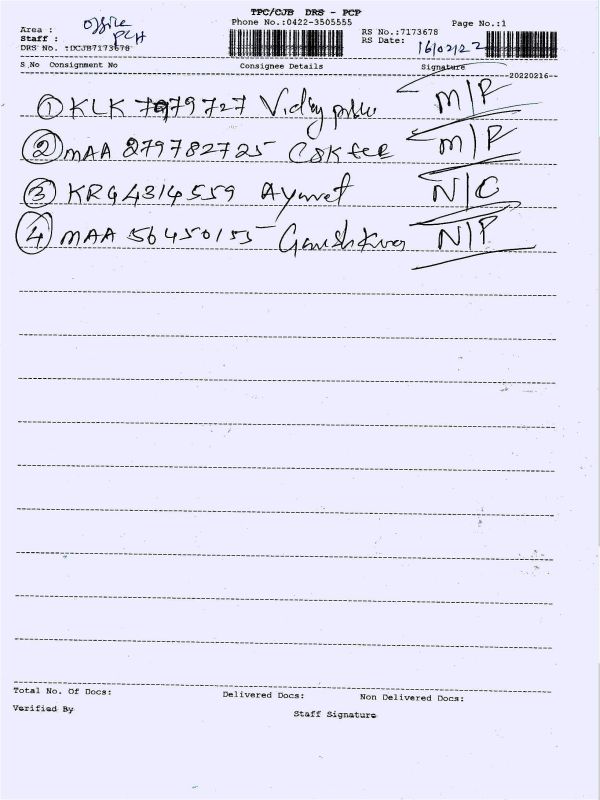 TPC/CJB DRS - PCP
Phone No.:0422-3505555
Page No.:1
Area : Office
Staff : PCH
RS No.:7173678
RS Date: 16/02/22
DRS No. :DCJB7173678
S No Consignment No Consignee Details Signature
20220216
① KLK 7979727 M/P
② MAA 279782725 M/P
③ KRG 4314559 N/C
④ MAA 56450155 N/P
Total No. Of Docs: Delivered Docs: Non Delivered Docs:
Verified By Staff Signature